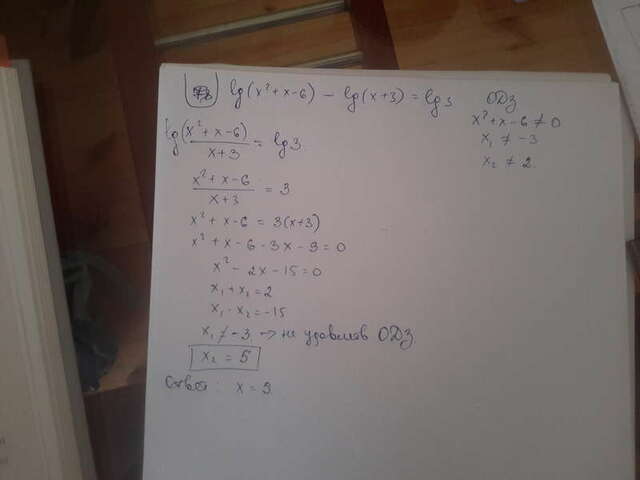 lg(x²+x-6) - lg(x+3) = lg3
ОДЗ
x²+x-6 ≠ 0
x₁ ≠ -3
x₂ ≠ 2
lg (x²+x-6)/(x+3) = lg3.
(x²+x-6)/(x+3) = 3
x²+x-6 = 3(x+3)
x²+x-6-3x-3=0
x²-2x-15=0
x₁+x₂=2
x₁·x₂=-15
x₁≠-3 → не удовлетв ОДЗ.
x₂ = 5
Ответ: x = 5